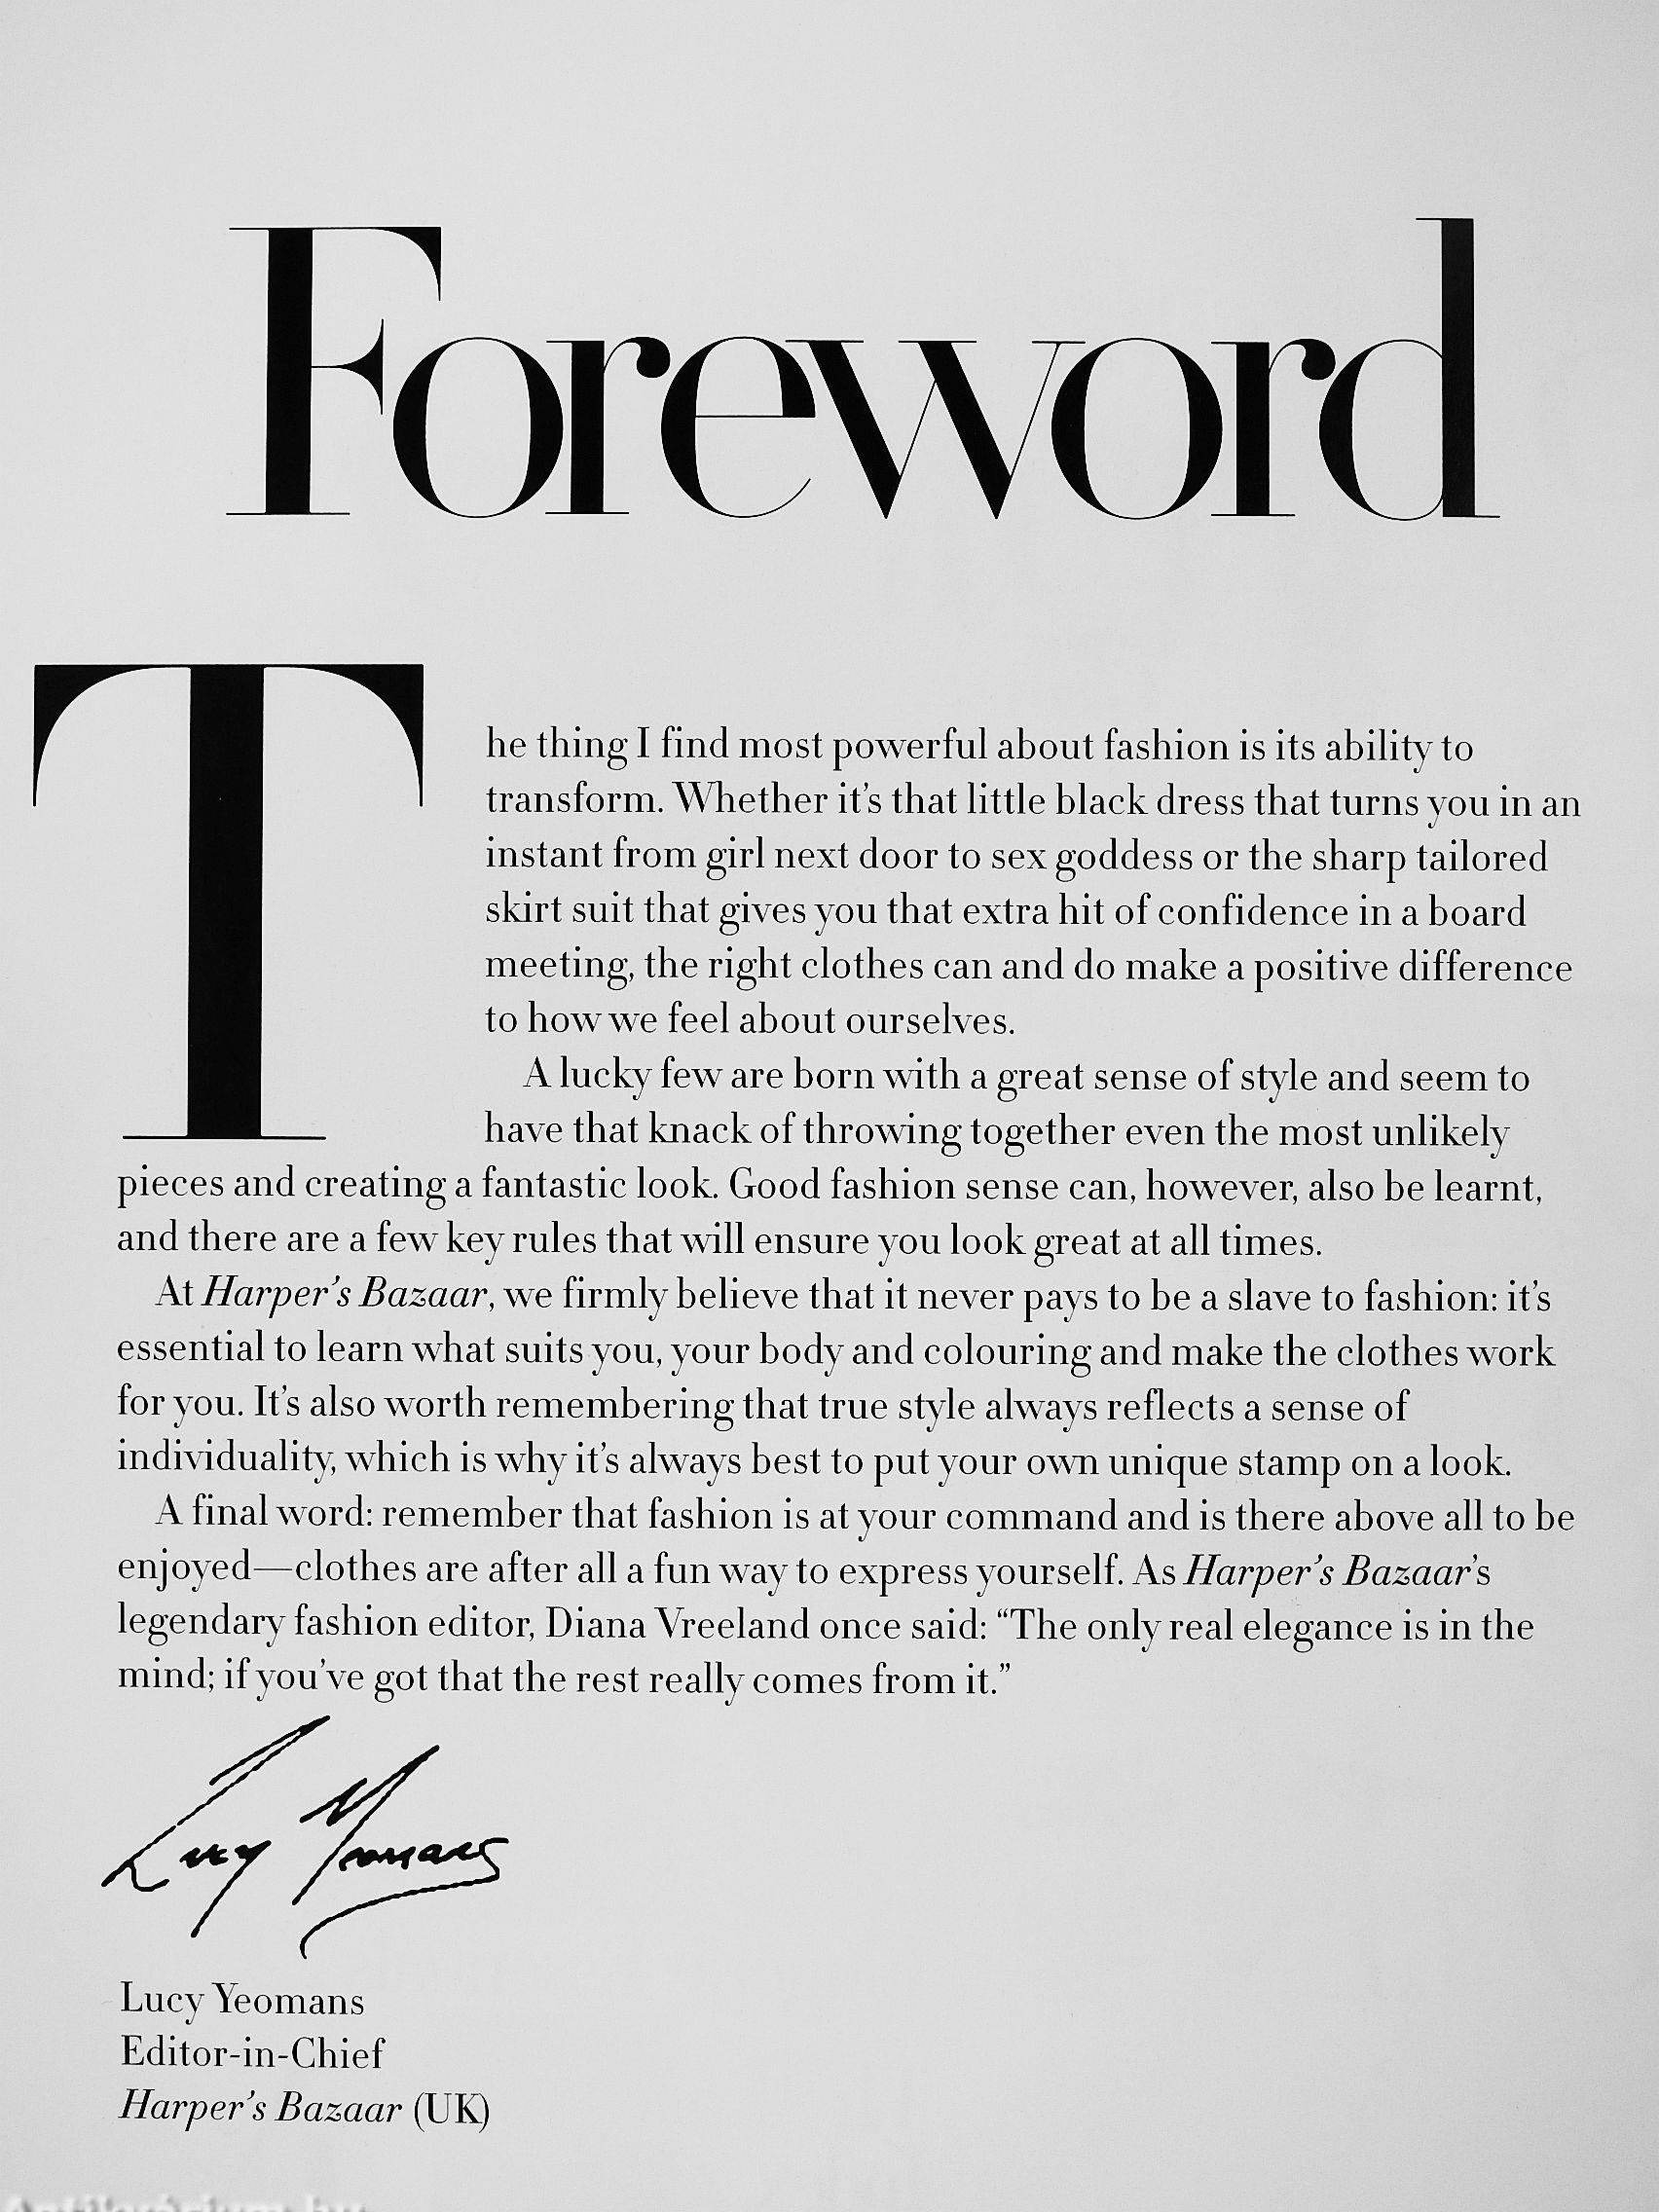 Foreword
The thing I find most powerful about fashion is its ability to
transform. Whether it’s that little black dress that turns you in an
instant from girl next door to sex goddess or the sharp tailored
skirt suit that gives you that extra hit of confidence in a board
meeting, the right clothes can and do make a positive difference
to how we feel about ourselves.
A lucky few are born with a great sense of style and seem to
have that knack of throwing together even the most unlikely
pieces and creating a fantastic look. Good fashion sense can, however, also be learnt,
and there are a few key rules that will ensure you look great at all times.
At Harper’s Bazaar, we firmly believe that it never pays to be a slave to fashion: it’s
essential to learn what suits you, your body and colouring and make the clothes work
for you. It’s also worth remembering that true style always reflects a sense of
individuality, which is why it’s always best to put your own unique stamp on a look.
A final word: remember that fashion is at your command and is there above all to be
enjoyed—clothes are after all a fun way to express yourself. As Harper’s Bazaar’s
legendary fashion editor, Diana Vreeland once said: “The only real elegance is in the
mind; if you’ve got that the rest really comes from it.”
Lucy Yeomans
Lucy Yeomans
Editor-in-Chief
Harper’s Bazaar (UK)